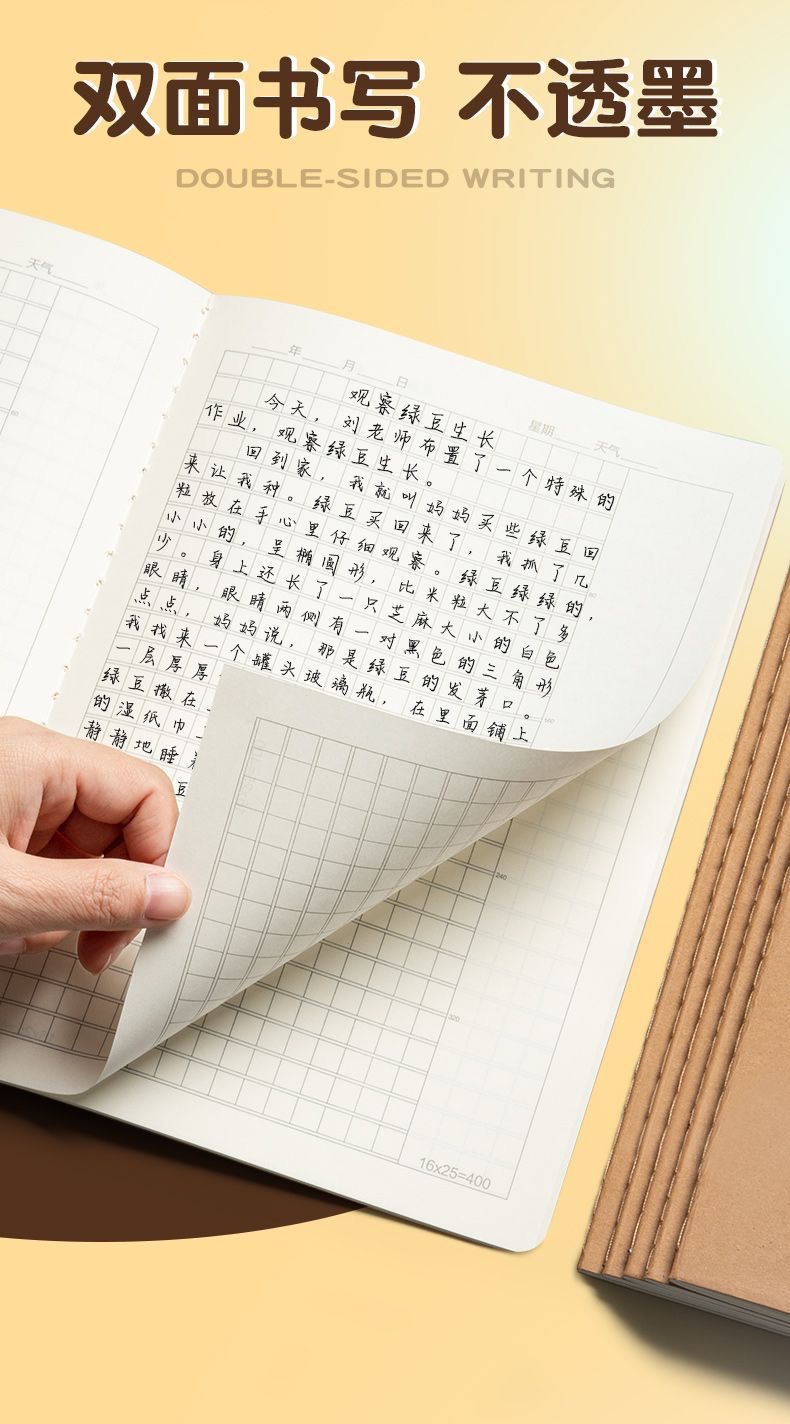 双面书写 不透墨
DOUBLE-SIDED WRITING
天气
年 月 日
星期 天气
观察绿豆生长
今天，刘老师布置了一个特殊的
作业，观察绿豆生长。
回到家，我就叫妈妈买些绿豆回
来让我种。绿豆买回来了，我抓了几
粒放在手心里仔细观察。绿豆绿绿的，
小小的，呈椭圆形，比米粒大不了多
少。身上还长了一只芝麻大小的白色
眼睛，眼睛两侧有一对黑色的三角形
点点，妈妈说，那是绿豆的发茅口。
我找来一个罐头玻璃瓶，在里面铺上
一层厚厚
绿豆撒在
的湿纸巾
静静地睡
豆
240
320
16x25=400